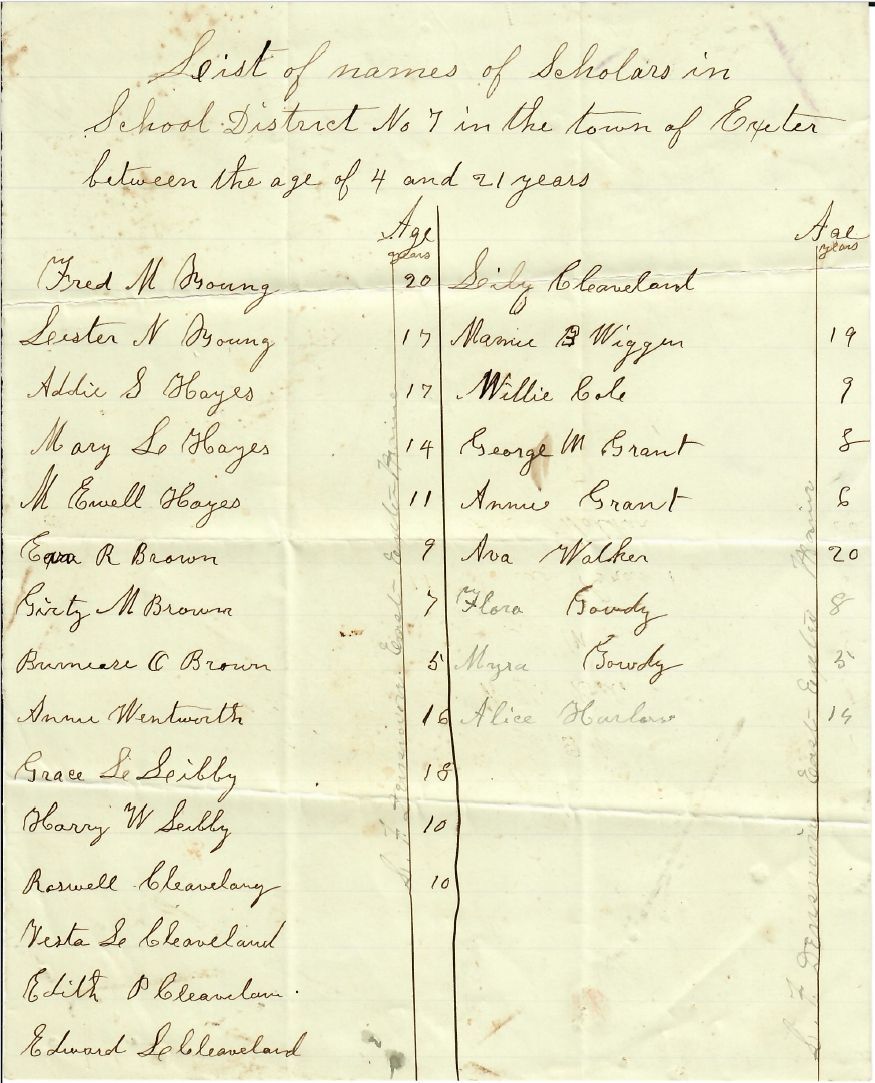 List of names of Scholars in
School District No 7 in the town of Exeter
between the age of 4 and 21 years
Age
years
Fred M Young 20
Lester N Young 17
Addie S Hayes 17
Mary L Hayes 14
M Ewell Hayes 11
R Brown 9
Girty M Brown 7
C Brown 5
Annie Wentworth 16
Grace L Libby 18
Harry W Libby 10
Roswell Cleaveland 10
Vesta L Cleaveland
Edith P Cleavelan
Edward L Cleaveland
Age
years
Lily Cleaveland
Mamie B Wiggin 19
Willie Cole 9
George M Grant 8
Annie Grant 6
Ava Walker 20
Flora Gowdy 8
Myra Gowdy 5
Alice Harlow 14
East Exeter Maine
East Exeter Maine